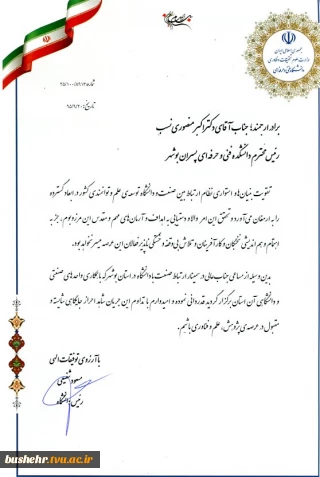 جمهوری اسلامی ایران
وزارت علوم تحقیقات و فناوری
شماره: ۲۵/۱۰۰/۵۹۱۷۳
تاریخ: ۹۵/۹/۲۰
برادر ارجمند؛ جناب آقای دکتر اکبر منصوری نسب
رئیس محترم دانشکده فنی و حرفه ای پسران بوشهر
تقویت بنیان‌ها و استواری نظام ارتباط بین صنعت و دانشگاه توسعه‌ی علم و توانمندی کشور در ابعاد گسترده
را به ارمغان می‌آورد و تحقق این امر والا و دستیابی به اهداف و آرمان های مهم و مقدس این مرز و بوم، جز به
اهتمام و هم اندیشی نخبگان و کارآفرینان و تلاش بی‌وقفه و خستگی ناپذیر فعالان این عرصه میسر نخواهد بود.
بدین وسیله از مساعی جناب‌عالی در سمینار ارتباط صنعت با دانشگاه در استان بوشهر که با همکاری واحدهای صنعتی
و دانشگاهی آن استان برگزار گردید قدردانی نموده و امیدوارم با تداوم این جریان شاهد احراز جایگاهی شایسته و
مقبول در عرصه‌ی پژوهش، علم و فناوری باشیم.
با آرزوی توفیقات الهی
مسعود شفیعی
رئیس دانشگاه
bushehr.tvu.ac.ir